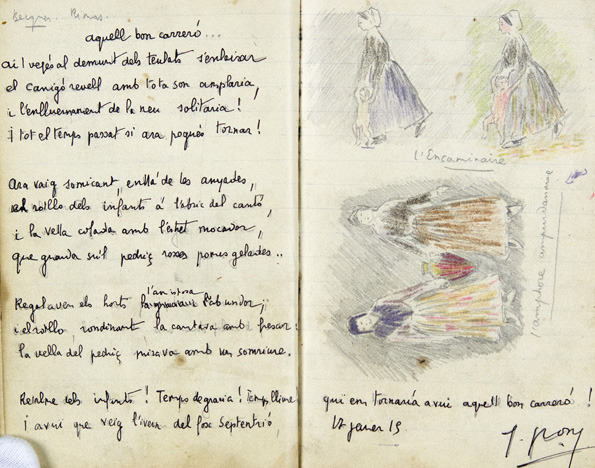 Becquer. Rimas.
aquell bon carreró...
ai! vegés al demunt dels teulats s'enlairar
el canigó revell amb tota son amplaria,
i l'enlluernament de la neu solitaria!
i tot el temps passat si ara pogués tornar!
Ara vaig somicant, enllá de les anyades,
el rotllo dels infants á l'abric del cantó,
i la vella cofada amb l'estret mocador,
que guarda sul pedriç roses pomes gelades..
Regalaven els horts l'amistosa l'abundor;
i el rotllo rondinant la cantava amb frescor:
la vella del pedriç mirava amb un somriure.
Reialme dels infants! Temps de gracia! Temps lliure!
i avui que veig l'ivern del fox Septentrió,
l'Encaminaire
l'amphore ampurdanaise
qui ens tornaria avui aquell bon carreró!
17 janer 15